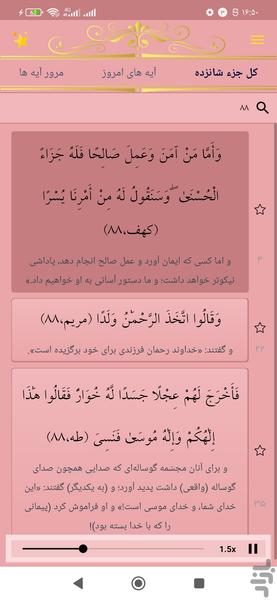 ۱۶:۵۰
کل جزء شانزده
آیه های امروز
مرور آیه ها
۸۸
وَأَمَّا مَنْ آمَنَ وَعَمِلَ صَالِحًا فَلَهُ جَزَاءً
الْحُسْنَىٰ ۖ وَسَنَقُولُ لَهُ مِنْ أَمْرِنَا يُسْرًا
(کهف،۸۸)
و اما کسی که ایمان آورد و عمل صالح انجام دهد، پاداشی
نیکوتر خواهد داشت؛ و ما دستور آسانی به او خواهیم داد.»
۳
وَقَالُوا اتَّخَذَ الرَّحْمَٰنُ وَلَدًا (مریم،۸۸)
و گفتند: «خداوند رحمان فرزندی برای خود برگزیده است».
۲۲
فَأَخْرَجَ لَهُمْ عِجْلًا جَسَدًا لَّهُ خُوَارٌ فَقَالُوا هَٰذَا
إِلَٰهُكُمْ وَإِلَٰهُ مُوسَىٰ فَنَسِيَ (طه،۸۸)
و برای آنان مجسمه گوساله‌ای که صدایی همچون صدای
گوساله (واقعی) داشت پدید آورد؛ و (به یکدیگر) گفتند: «این
خدای شما، و خدای موسی است!» و او فراموش کرد (پیمانی
را که با خدا بسته بود)!
۳۵
1.5x
بازار